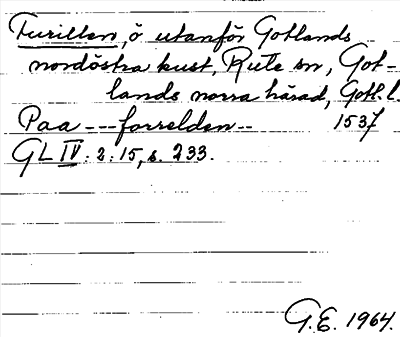 Furillen, ö utanför Gotlands
nordöstra kust, Rute sn, Got-
lands norra härad, Gotl. l.
Paa --- forrelden -- 1537
GL IV: 2: 15, s. 233.
G.E. 1964.